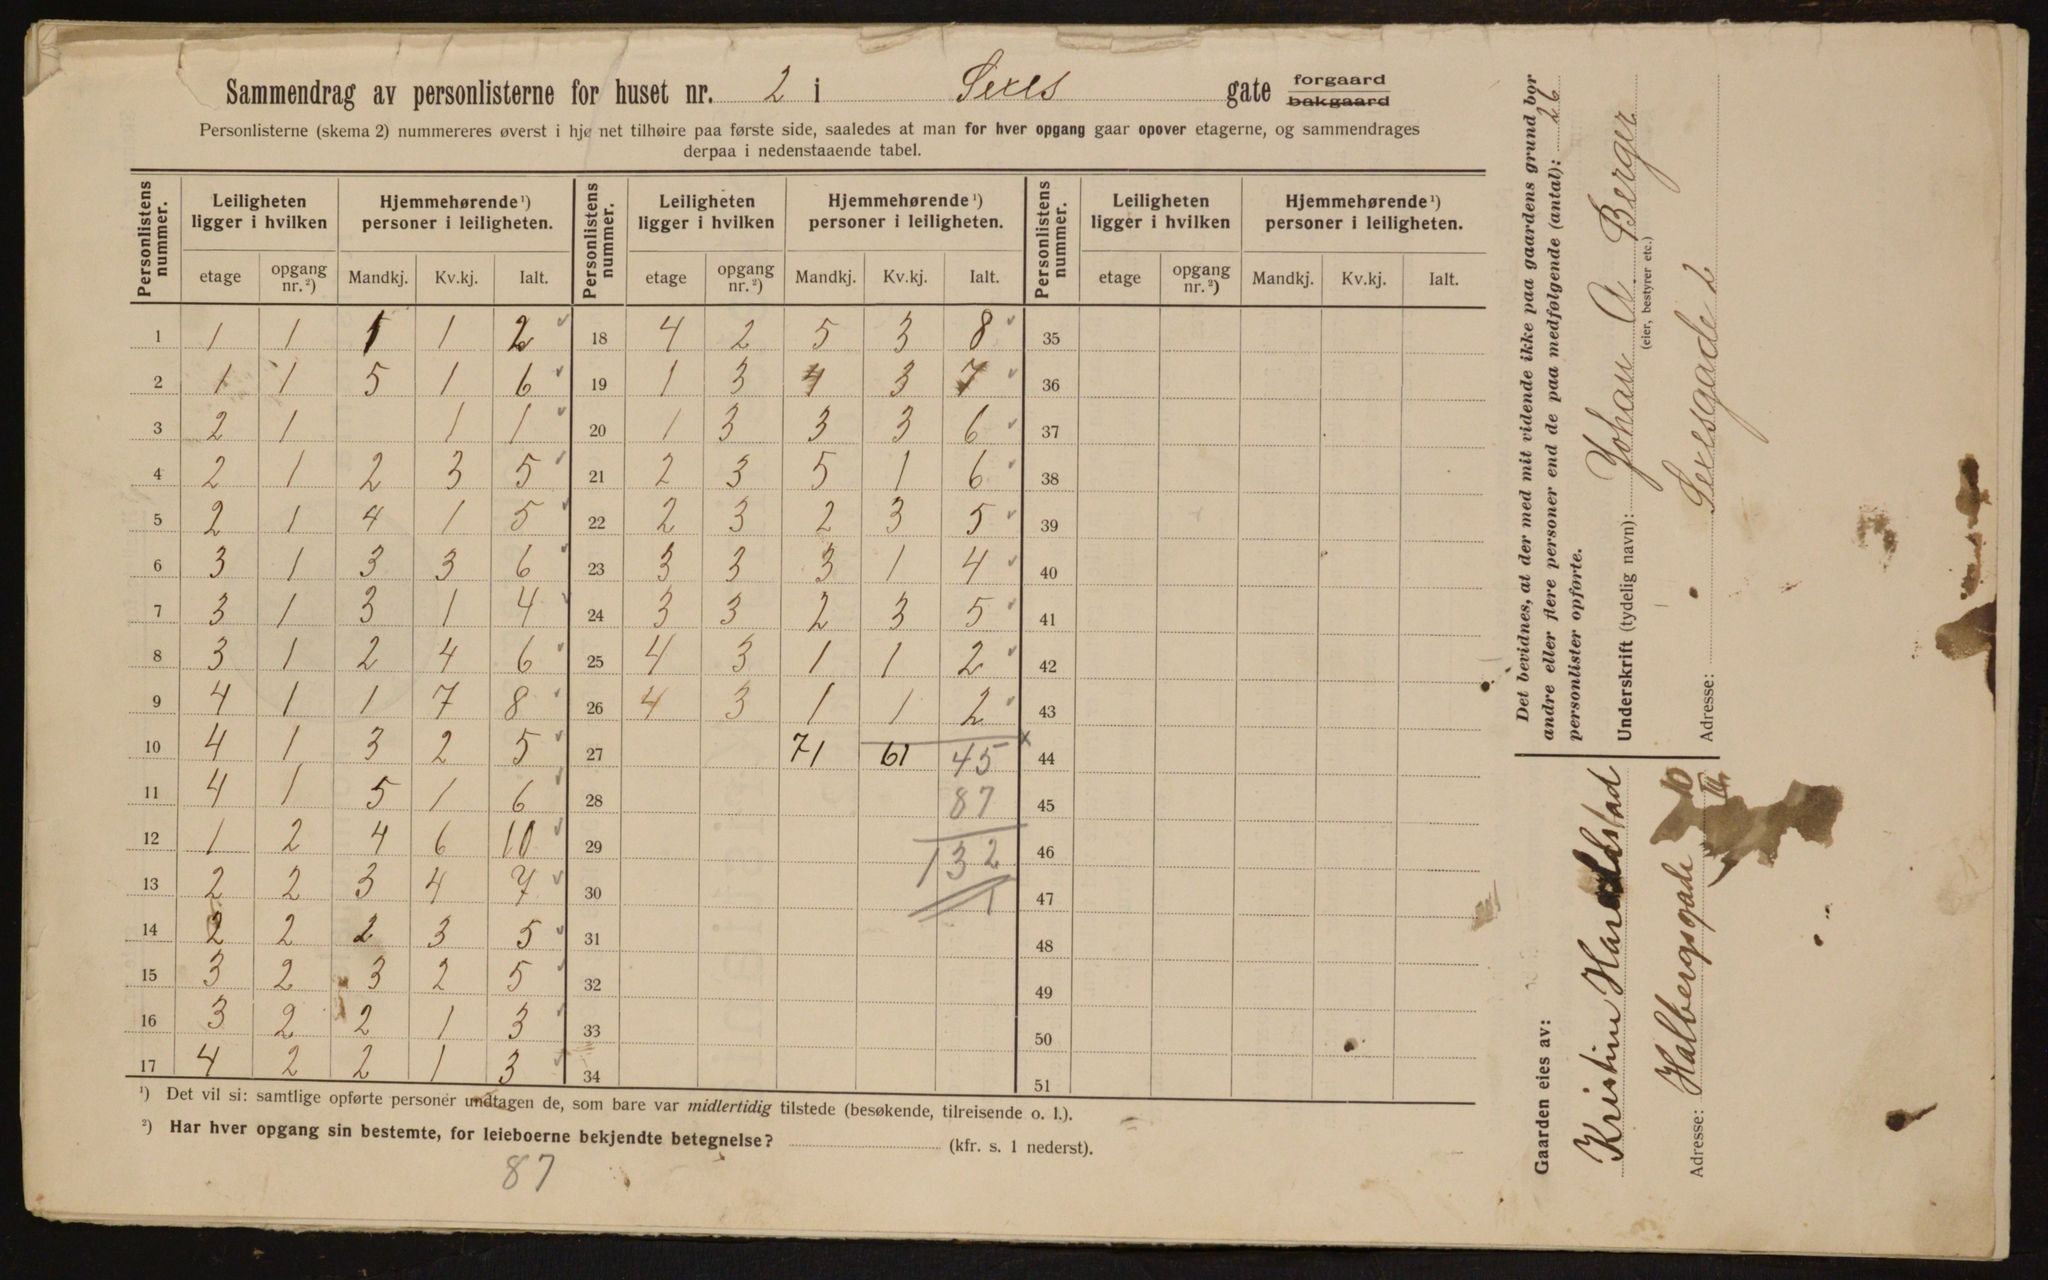 Sammendrag av personlisterne for huset nr. 2 i Sexes gate forgaard bakgaard
Personlisterne (skema 2) nummereres øverst i hjø net tilhøire paa første side, saaledes at man for hver opgang gaar opover etagerne, og sammendrages
derpaa i nedenstaaende tabel.
Personlistens nummer. Leiligheten ligger i hvilken Hjemmehørende ¹) personer i leiligheten. Personlistens nummer. Leiligheten ligger i hvilken Hjemmehørende ¹) personer i leiligheten. Personlistens nummer. Leiligheten ligger i hvilken Hjemmehørende ¹) personer i leiligheten.
etage opgang nr. ²) Mandkj. Kv.kj. Ialt. etage opgang nr. ²) Mandkj. Kv.kj. Ialt. etage opgang nr. ²) Mandkj. Kv.kj. Ialt.
1 1 1 1 1 2 18 4 2 5 3 8 35
2 1 1 5 1 6 19 1 3 4 3 7 36
3 2 1 1 1 20 1 3 3 3 6 37
4 2 1 2 3 5 21 2 3 5 1 6 38
5 2 1 4 1 5 22 2 3 2 3 5 39
6 3 1 3 3 6 23 3 3 3 1 4 40
7 3 1 3 1 4 24 3 3 2 3 5 41
8 3 1 2 4 6 25 4 3 1 1 2 42
9 4 1 1 7 8 26 4 3 1 1 2 43
10 4 1 3 2 5 27 71 61 45 44
11 4 1 5 1 6 28 87 45
12 1 2 4 6 10 29 132 46
13 2 2 3 4 7 30 47
14 2 2 2 3 5 31 48
15 3 2 3 2 5 32 49
16 3 2 2 1 3 33 50
17 4 2 2 1 3 34 51
¹) Det vil si: samtlige opførte personer undtagen de, som bare var midlertidig tilstede (besøkende, tilreisende o. l.).
²) Har hver opgang sin bestemte, for leieboerne bekjendte betegnelse? (kfr. s. 1 nederst).
87
Det bevidnes, at der med mit vidende ikke paa gaardens grund bor
andre eller flere personer end de paa medfølgende (antal): 26
personlister opførte.
Underskrift (tydelig navn): Johan A. Berger
(eier, bestyrer etc.)
Adresse: Sexesgade 2
Gaarden eies av:
Kristian Haraldstad
Adresse: Halbergsgade 10 III